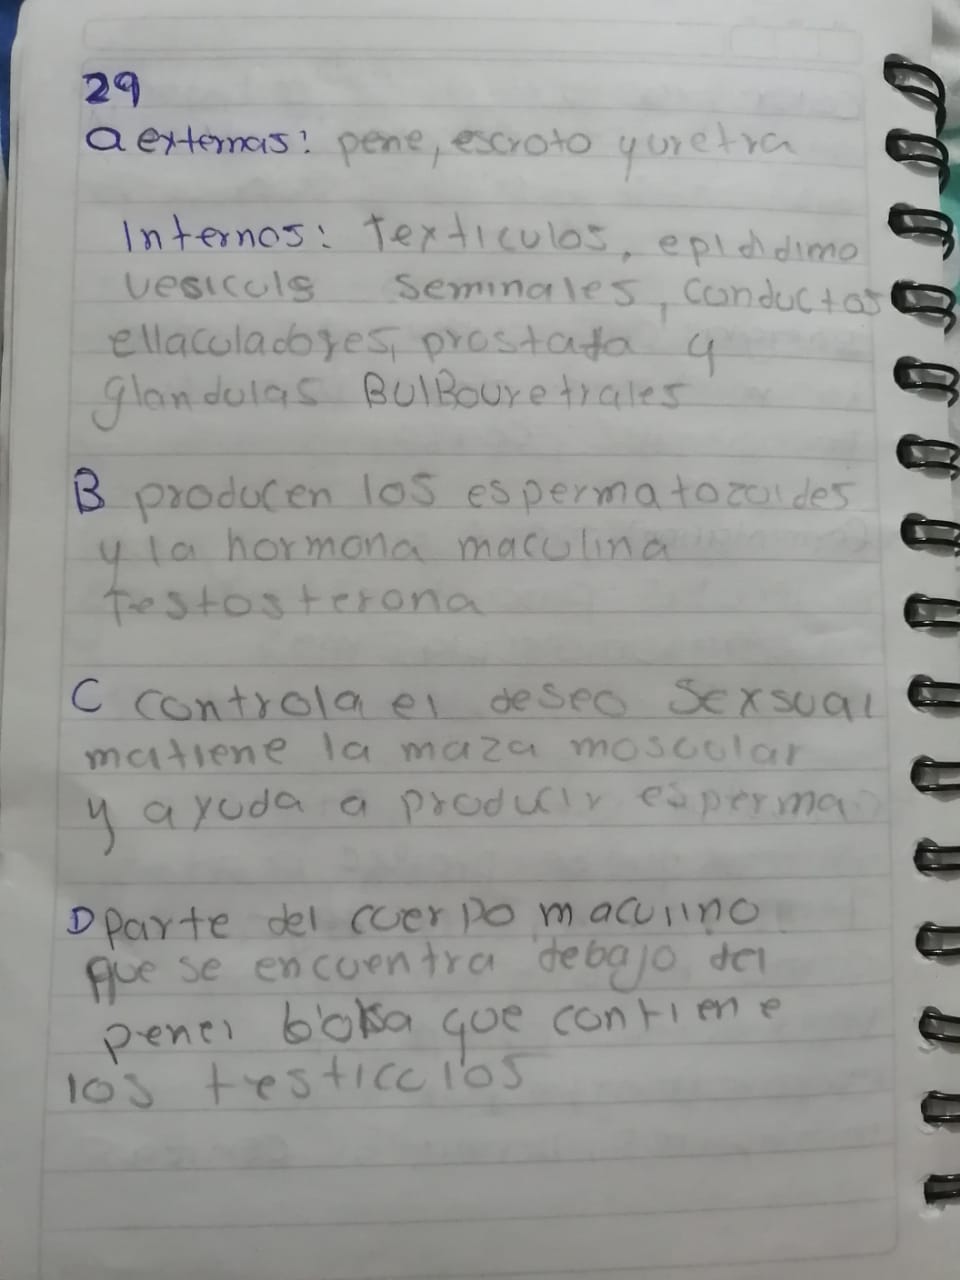 29
a externas: pene, escroto y uretra
Internos: Texticulos, epididimo
vesiculs seminales, conductos
ellaculadores, prostata y
glandulas BUlBouretrales
B producen los espermatozoides
y la hormona maculina
testosterona
C controla el deseo sexsual
matiene la maza moscular
y ayuda a producir esperma
D parte del cuerpo maculino
que se encuentra debajo del
penei bolsa que contiene
los testicclos